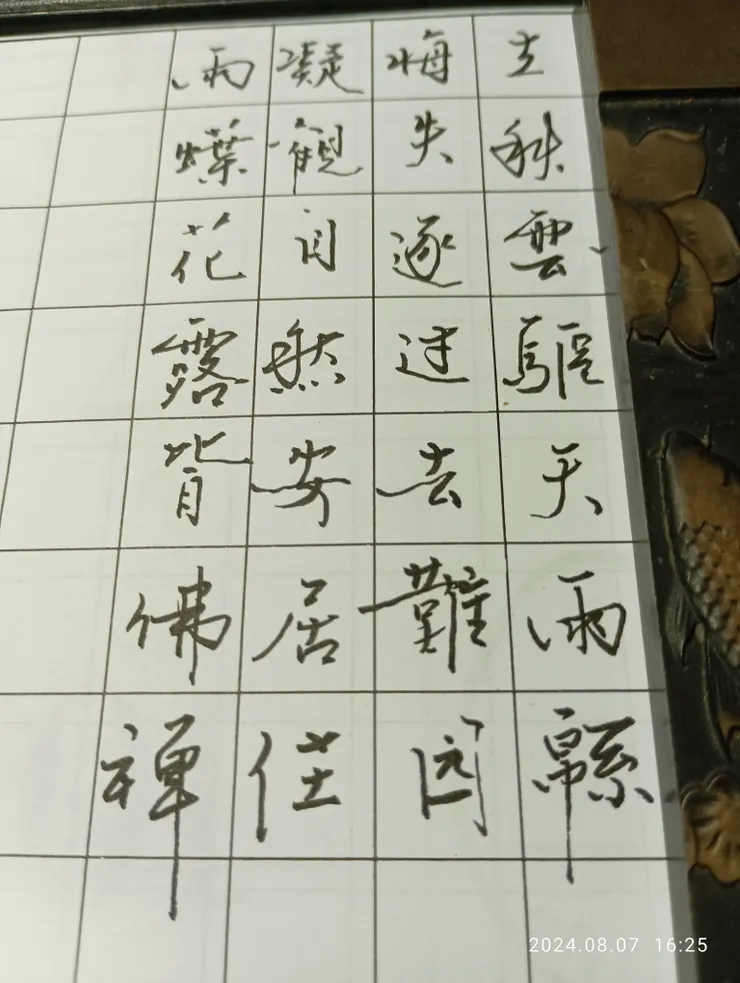 立秋雲驅天雨緜
悔失逐过去難园
凝觀自然安居住
雨蝶花露皆佛禪
2024.08.07 16:25